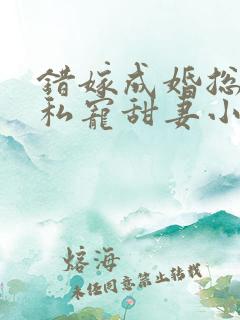 错嫁成婚总
私宠甜妻小
熔海
未经同意禁止转载